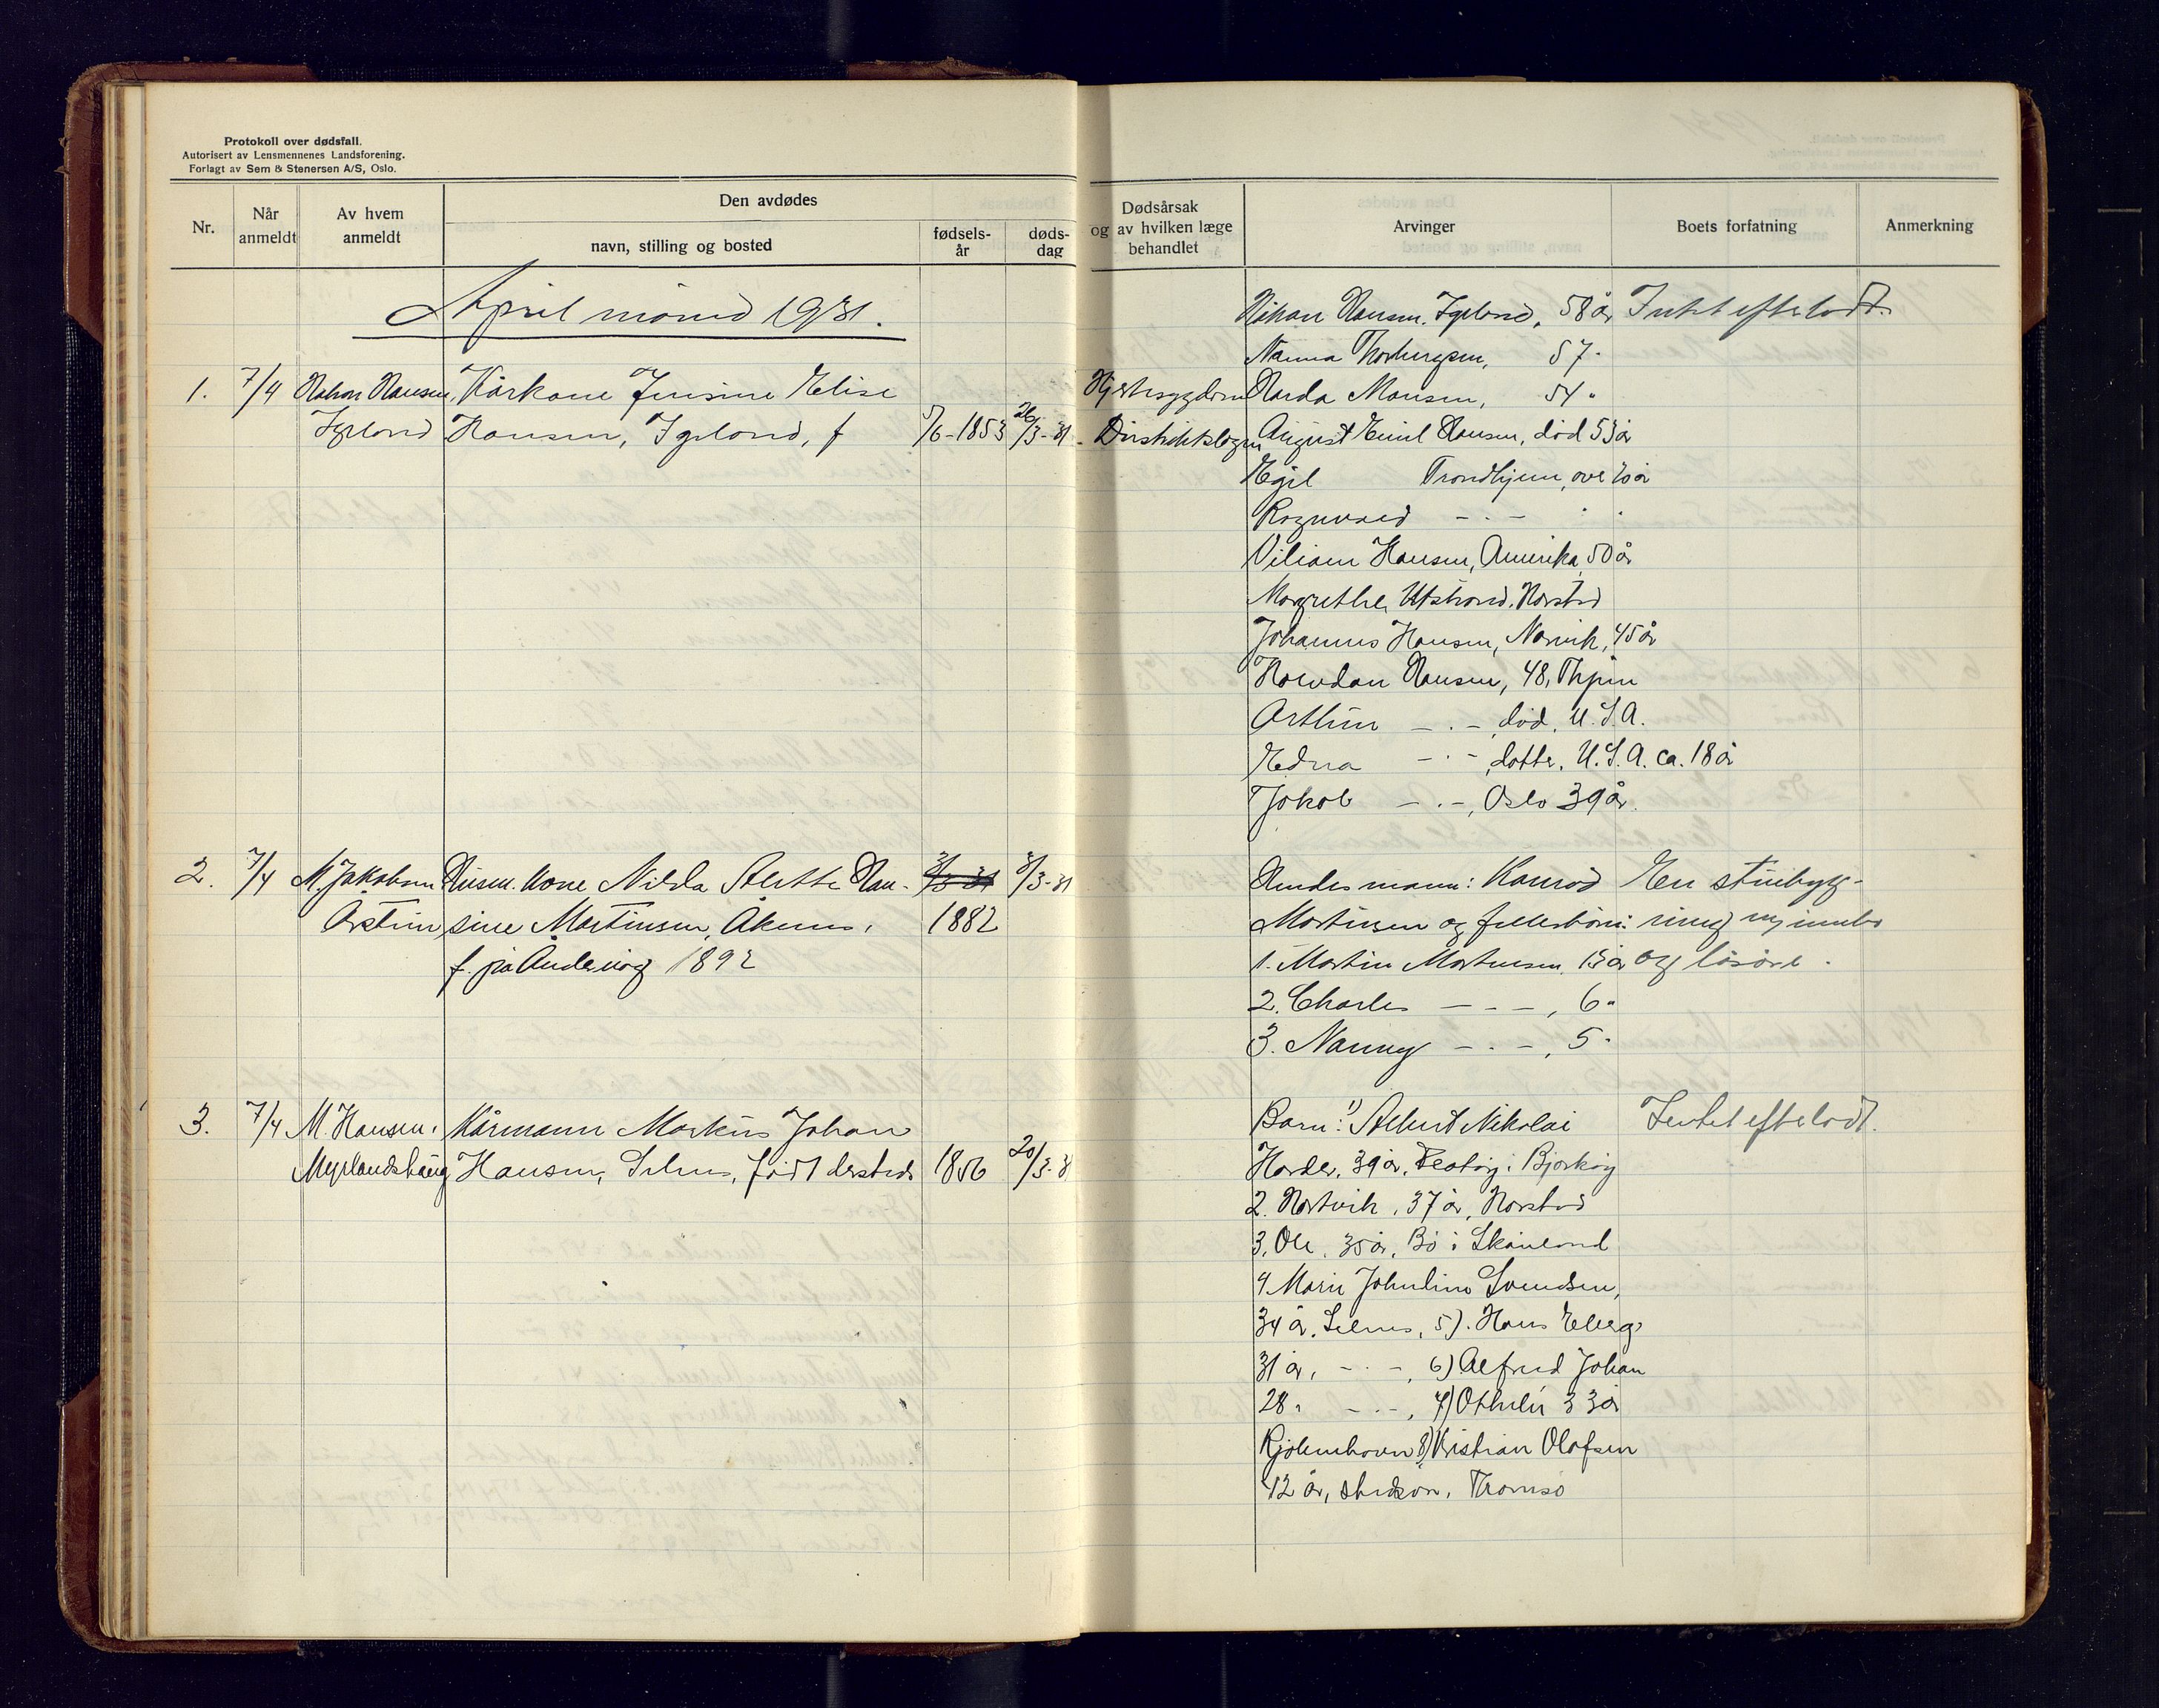 Protokoll over dødsfall.
Autorisert av Lensmennenes Landsforening.
Forlagt av Sem & Stenersen A/S, Oslo.
Nr.
Når anmeldt
Av hvem anmeldt
Den avdødes
navn, stilling og bosted
fødsels-år
døds-dag
Dødsårsak og av hvilken læge behandlet
Arvinger
Boets forfatning
Anmerkning
April måned 1931.
Håkon Hansen, Igeland, 58 år Intet efterlatt.
Nanna Thorbergsen, 57 "
1. 7/4 Håkon Hansen, Kårkone Jensine Elise Hjertesygdom Harda Monsen, 54 "
Igeland Hansen, Igeland, f 5/6-1853 26/3-31. Distriktslægen August Emil Hansen, død 53 år
Egil Trondhjem, over 20 år
Ragnvald - " - " "
Viliam Hansen, Amerika, 50 år
Margrethe Utstrand, Harstad
Johannes Hansen, Narvik, 45 år
Halvdan Hansen, 48, Thjem
Arthur - " -, død, U.S.A.
Edna - " -, datter, U.S.A. ca. 18 år
Jakob - " -, Oslo 39 år.
2. 7/4 M. Jakobsen Husm. kone Hilda Alette Han- 3/3-31 3/3-31 Ektemann: Konrad En stuebygg-
sine Martinsen, Åkenes, 1882 Martinsen og fellesbarn: ning m/ innbo
f. på Andenæs 1892 1. Martin Martinsen, 13 år og løsøre.
2. Charles - - -, 6 "
3. Nanny - " -, 5 "
3. 7/4 M. Hansen, Kårmann Markus Johan Barn: 1) Albert Nikolai Intet efterladt.
Myrlandshaug Hansen, Selnes, født dersteds 1856 20/3-3 39 år, i Bjarkøy
2. Hartvik, 37 år, Harstad
3. Ole, 35 år, Bø i Skånland
4 Marie Svendsen,
34 år, Selnes, 5). Hans
31 år, - " -, 6) Alfred Johan
28 " - " -, 7) Othelie 33 år
Kjøbenhavn 8) Kristian Olafsen
42 år, stedsøn, Tromsø